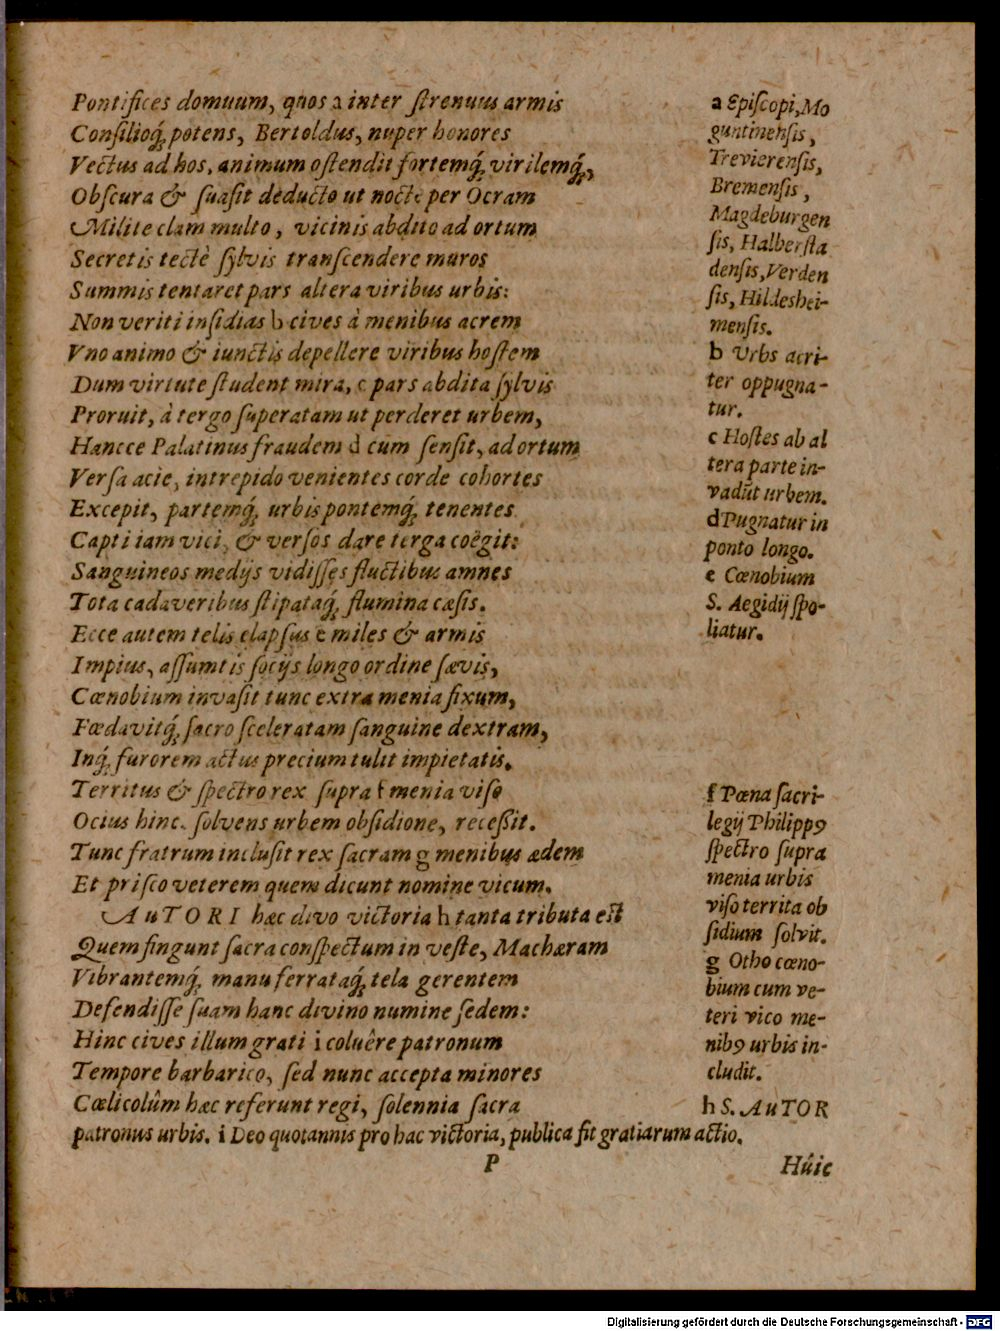 Pontifices domuum, quos a inter ſtrenuus armis
Conſilioq́; potens, Bertoldus, nuper honores
Vectus ad hos, animum oſtendit fortemq́; virilemq́;,
Obſcura & ſuaſit deducto ut nocte per Ocram
Milite clam multo, vicinis abdito ad ortum
Secretis tectè ſylvis transcendere muros
Summis tentaret pars altera viribus urbis:
Non veriti inſidias b cives à menibus acrem
Vno animo & iunctis depellere viribus hoſtem
Dum virtute ſtudent mira, c pars abdita ſylvis
Proruit, à tergo ſuperatam ut perderet urbem,
Hancce Palatinus fraudem d cum ſenſit, ad ortum
Verſa acie, intrepido venientes corde cohortes
Excepit, partemq́; urbis pontemq́; tenentes
Capti iam vici, & verſos dare terga coêgit:
Sanguineos medijs vidiſſes fluctibus amnes
Tota cadaveribus ſtipataq́; flumina cæſis.
Ecce autem telis elapſus e miles & armis
Impius, aſſumtis ſocijs longo ordine ſævis,
Cœnobium invaſit tunc extra menia fixum,
Fœdavitq́; ſacro ſceleratam ſanguine dextram,
Inq́; furorem actus precium tulit impietatis.
Territus & ſpectro rex ſupra f menia viſo
Ocius hinc ſolvens urbem obſidione, receßit.
Tunc fratrum incluſit rex ſacram g menibus ædem
Et priſco veterem quem dicunt nomine vicum.
AuTORI hæc divo victoria h tanta tributa eſt
Quem fingunt ſacra conſpectum in veſte, Machæram
Vibrantemq́; manu ferrataq́; tela gerentem
Defendiſſe ſuam hanc divino numine ſedem:
Hinc cives illum grati i coluêre patronum
Tempore barbarico, ſed nunc accepta minores
Cœlicolûm hæc referunt regi, ſolennia ſacra
a Epiſcopi, Mo
guntinenſis,
Trevierenſis,
Bremenſis,
Magdeburgen
ſis, Halberſta
denſis, Verden
ſis, Hildeshei-
menſis.
b Urbs acri-
ter oppugna-
tur.
c Hoſtes ab al
tera parte in-
vadūt urbem.
d Pugnatur in
ponto longo.
e Cœnobium
S. Aegidij ſpo-
liatur.
f Pœna ſacri-
legij Philippꝰ
ſpectro ſupra
menia urbis
viſo territa ob
ſidium ſolvit.
g Otho cœno-
bium cum ve-
teri vico me-
nibꝰ urbis in-
cludit.
h S. AuTOR
patronus urbis. i Deo quotannis pro hac victoria, publica fit gratiarum actio.
P
Hûic
Digitalisierung gefördert durch die Deutsche Forschungsgemeinschaft - DFG